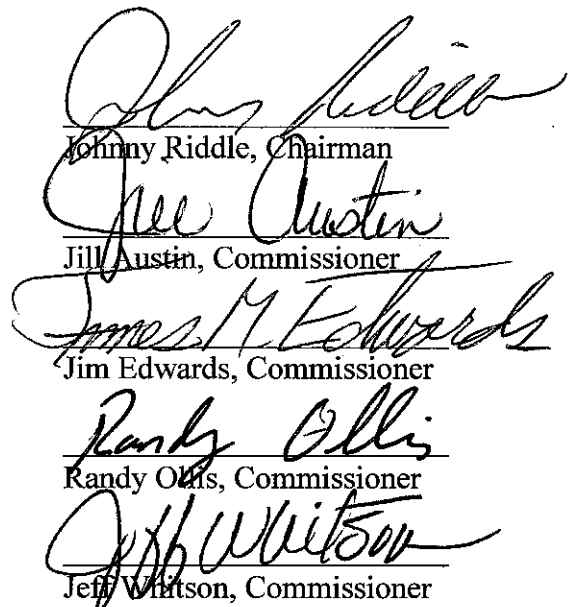 Johnny Riddle
Johnny Riddle, Chairman
Jill Austin
Jill Austin, Commissioner
James M Edwards
Jim Edwards, Commissioner
Randy Ollis
Randy Ollis, Commissioner
Jeff Whitson
Jeff Whitson, Commissioner